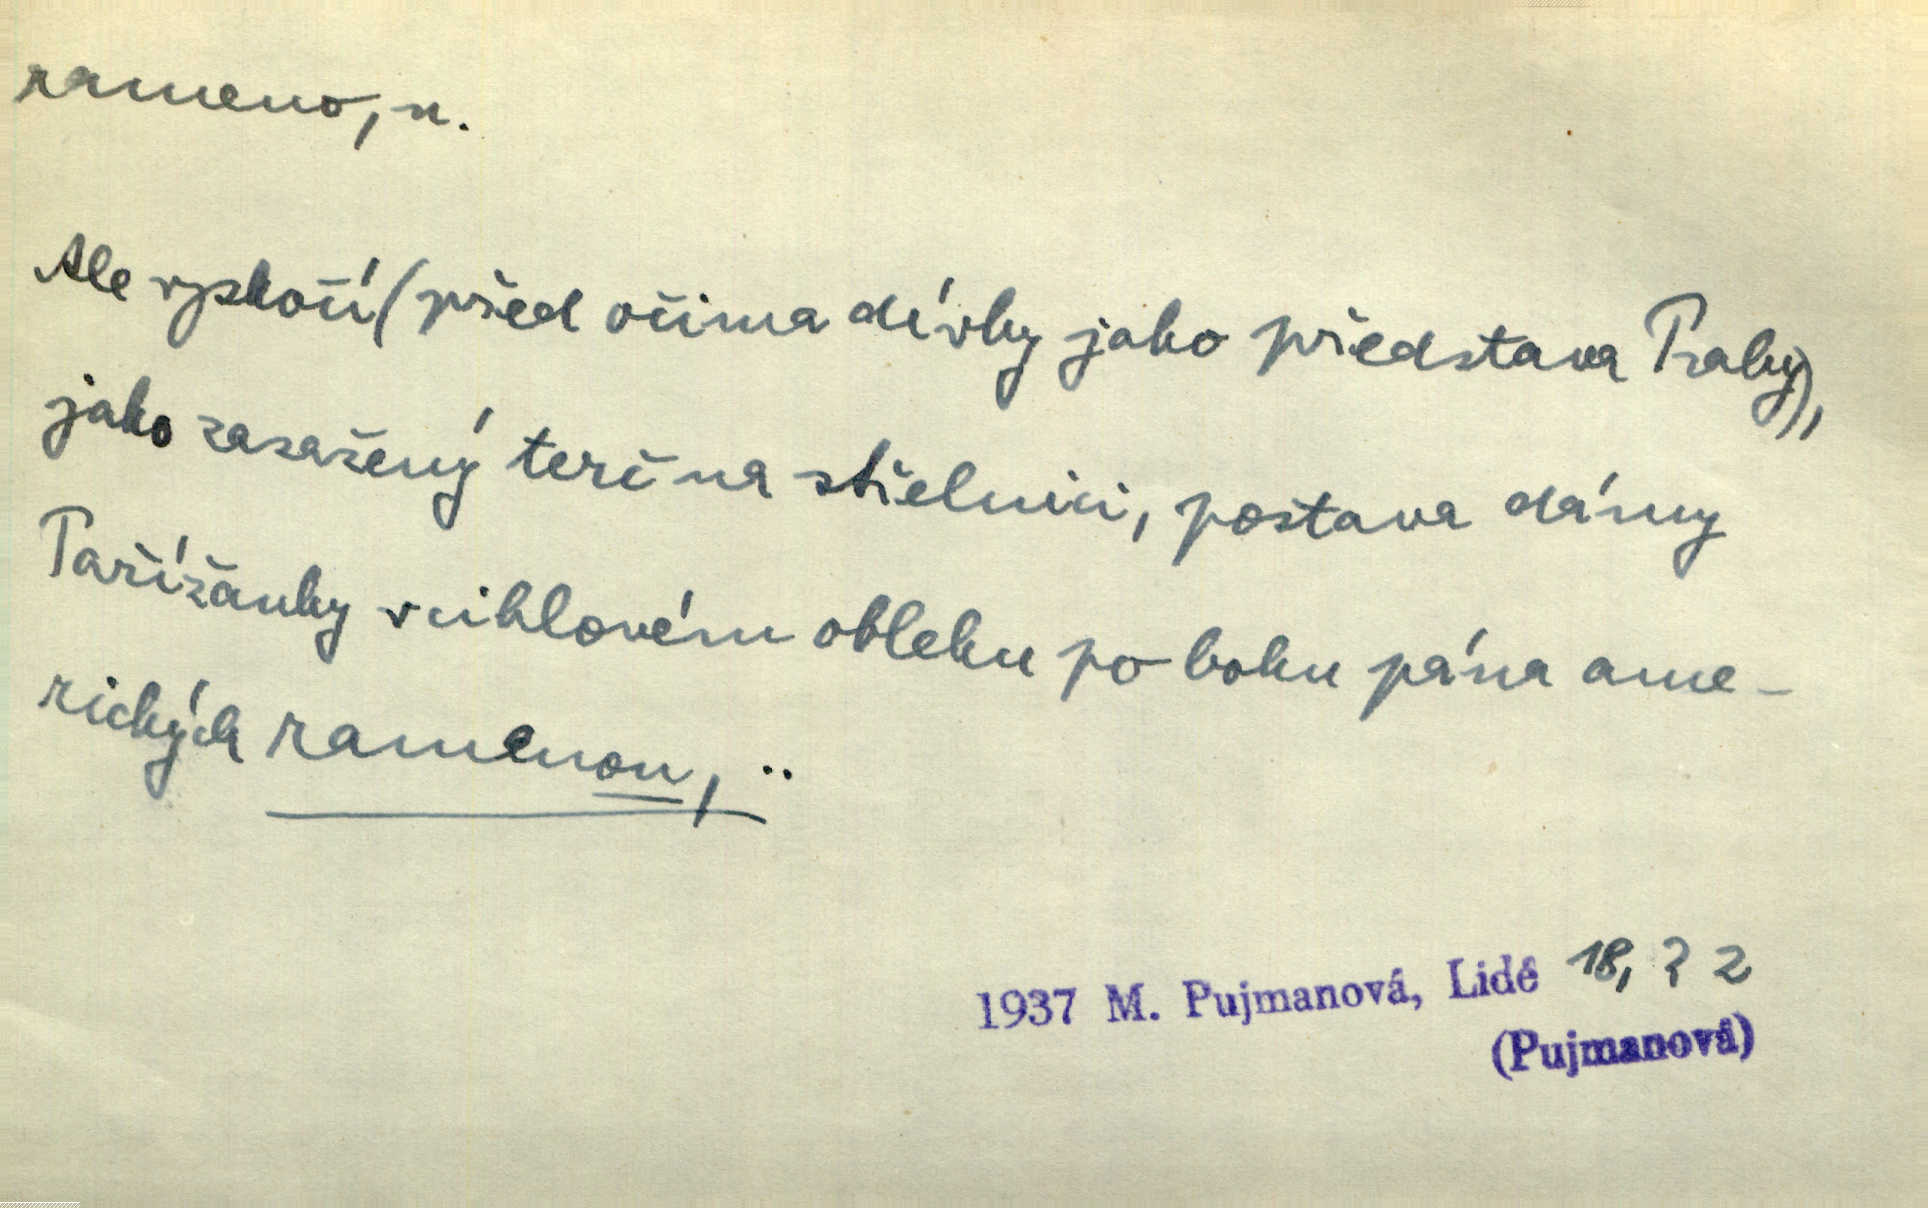 rameno, n.
Ale vyskočí (před očima dívky jako představa Prahy),
jako zasažený terč na střelnici, postava dámy
Pařížanky v cihlovém obleku po boku pána ame-
rických ramenou, ..
1937 M. Pujmanová, Lidé 18, ? 2
(Pujmanová)